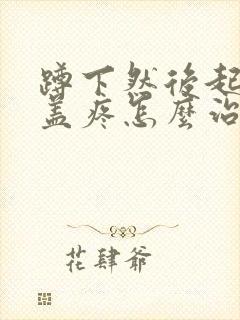 蹲下然後起
蓋疼怎麼治
花肆爺